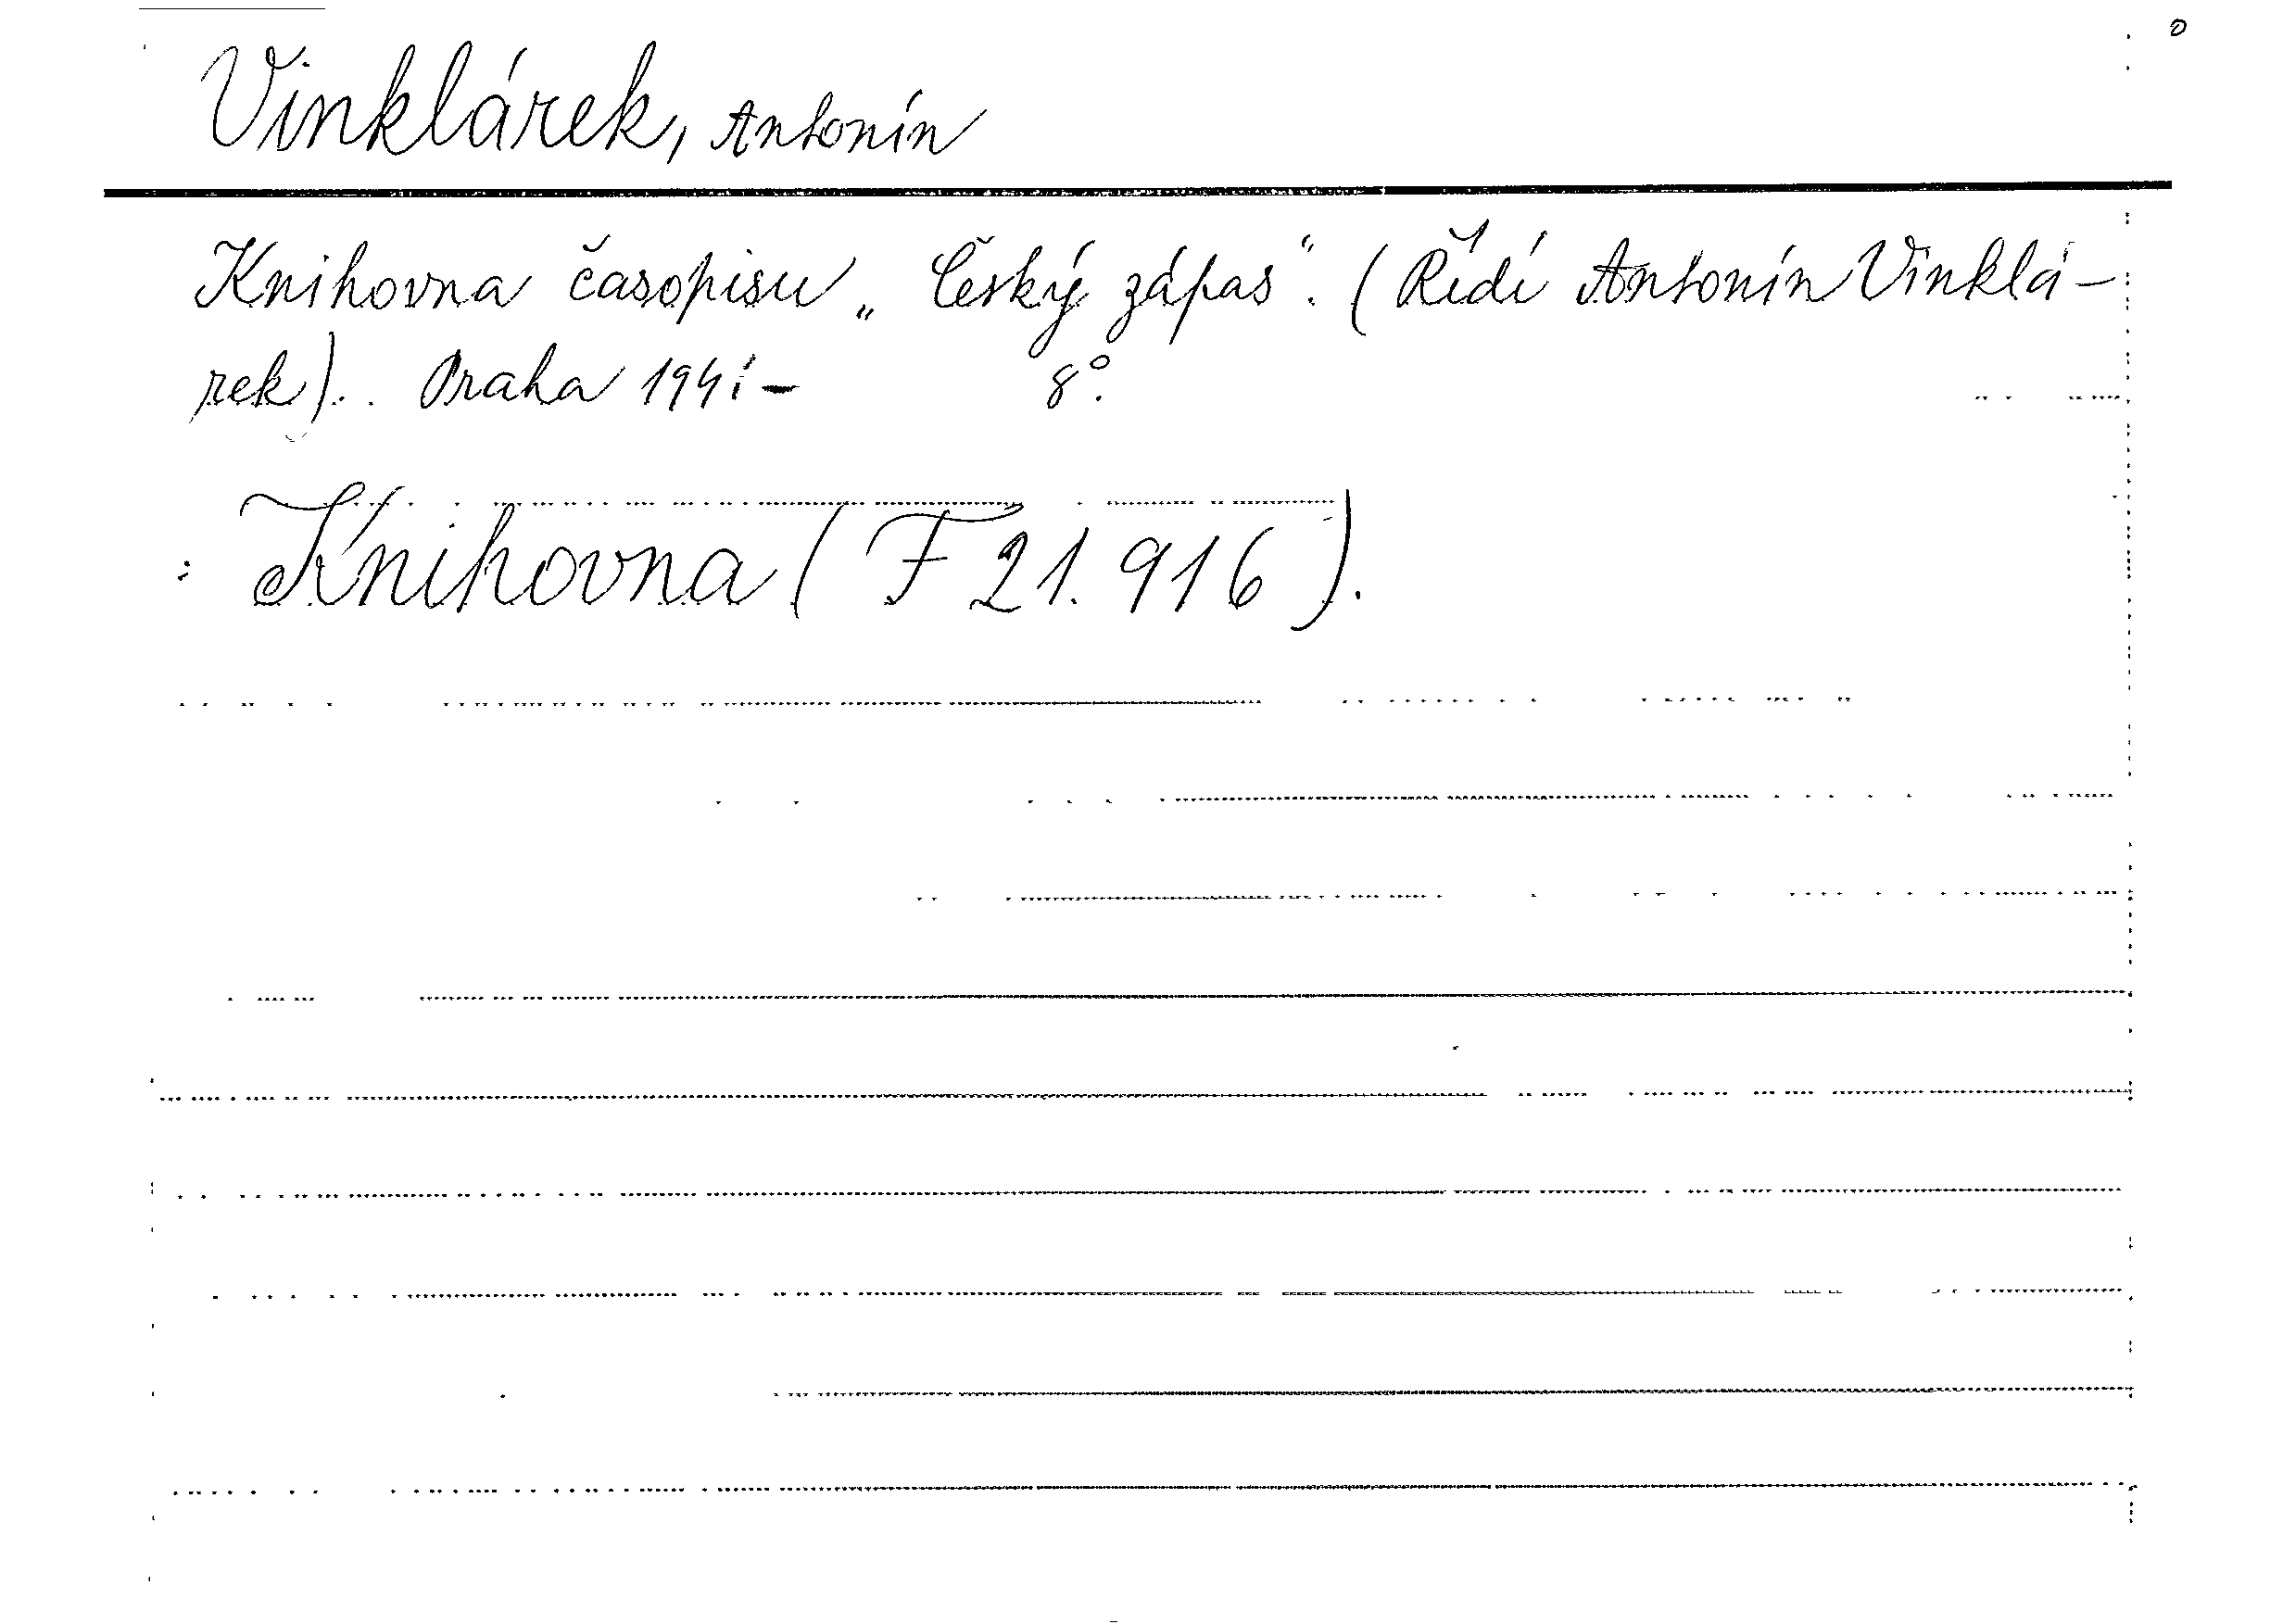 Vinklárek, Antonín
Knihovna časopisu „Český zápas“. (Řídí Antonín Vinklá-
rek). . Praha 1941- 8°.
: Knihovna (F 21.916).